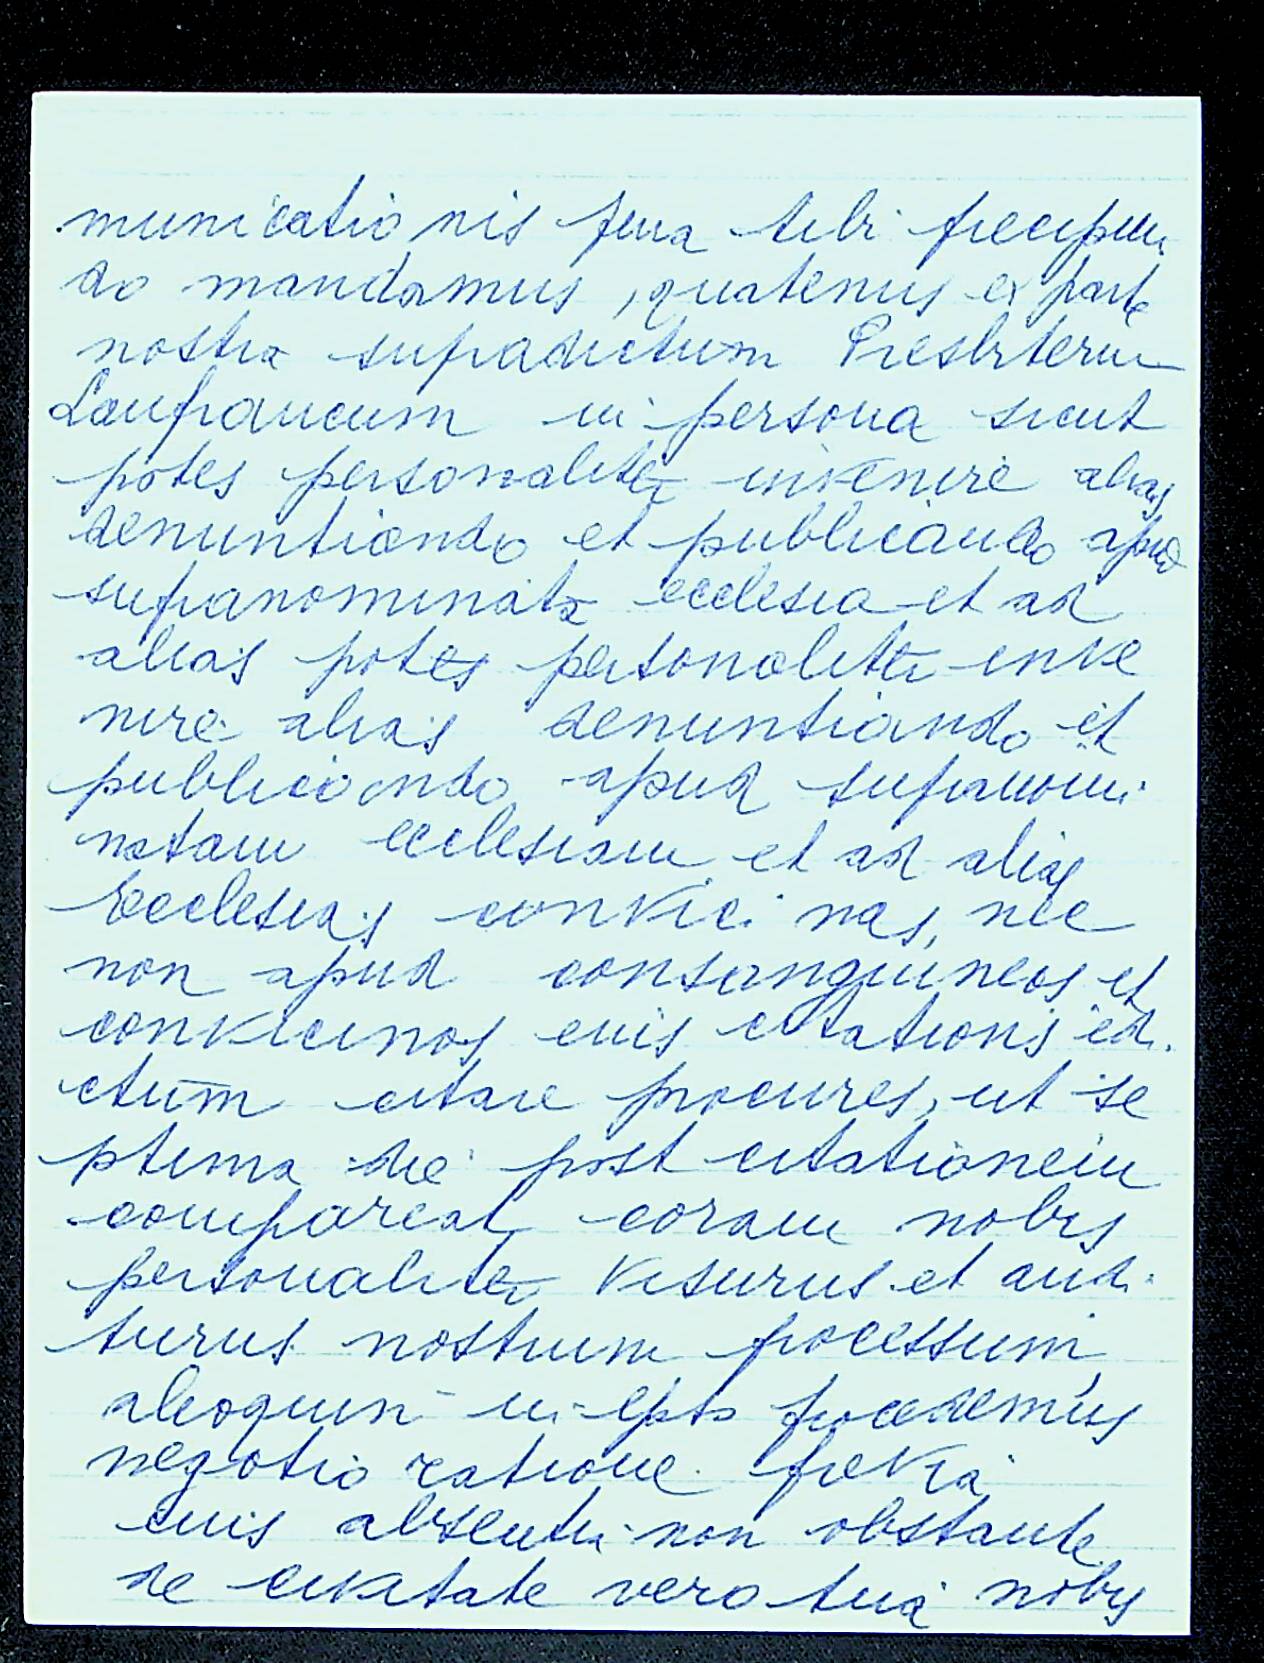 municationis pena tibi precipien
do mandamus, quatenus ex parte
nostra supradictum Presbiterum
Lanfrancum in persona sicut
potes personaliter invenire alias
denuntiando et publicando apud
supranominata ecclesia et ad
alias potes personaliter inve
nire alias denuntiando et
publicando apud supranomi
natam ecclesiam et ad alias
Ecclesias convici nas, nec
non apud consanguineos et
convicinos eius citationis edi
ctum citare procures, ut se
ptima die post citationem
compareat coram nobis
personaliter visurus et audi
turus nostrum processum
alioquin in ipso procedemus
negotio ratione previa
eius absentia non obstante
de civitate vero tua nobis